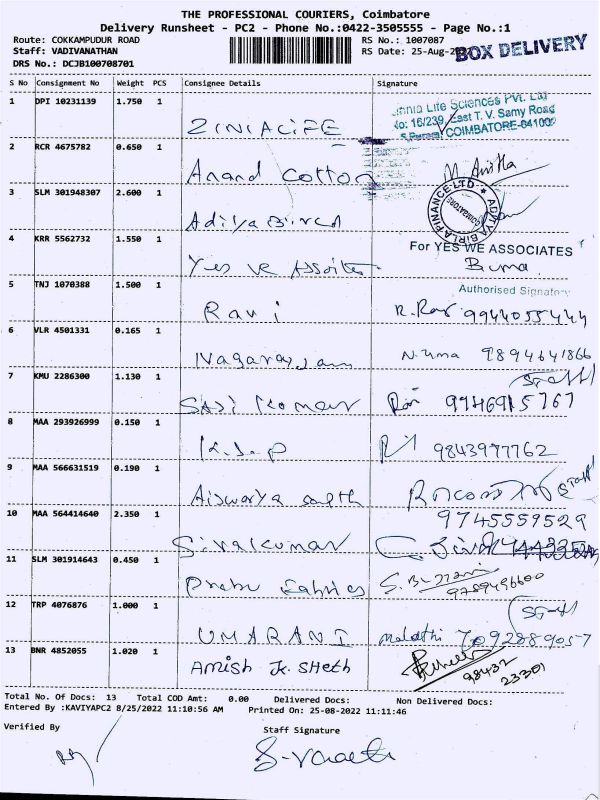 THE PROFESSIONAL COURIERS, Coimbatore
Delivery Runsheet - PC2 - Phone No.:0422-3505555 - Page No.:1
Route: COKKAMPUDUR ROAD RS No.: 1007087
Staff: VADIVANATHAN RS Date: 25-Aug-2
BOX DELIVERY
DRS No.: DCJB100708701
S No Consignment No Weight PCS Consignee Details Signature
1 DPI 10231139 1.750 1 ZINIACIFE
Life Sciences Pvt. Ltd
No: 16/239, East T. V. Samy Road
COIMBATORE-641002
2 RCR 4675782 0.650 1 Anand Cotton
3 SLM 301948307 2.600 1 Aditya Birla
ADITYA BIRLA FINANCE LTD. COIMBATORE
4 KRR 5562732 1.550 1
For YES WE ASSOCIATES
5 TNJ 1070388 1.500 1 Ravi 9944055444
Authorised Signatory
6 VLR 4501331 0.165 1 Nagarajan N. Uma 9894641866
7 KMU 2286300 1.130 1 SASI Kumar 9746915767
8 MAA 293926999 0.150 1 9843977762
9 MAA 566631519 0.190 1 Aiswarya
10 MAA 564414640 2.350 1 Sivakumar 9745559529
11 SLM 301914643 0.450 1 Prabu Fabrics 9789496600
12 TRP 4076876 1.000 1 UMARANI Malathi 7092889057
13 BNR 4852055 1.020 1 Amish K. Sheth 98432 23301
Total No. Of Docs: 13 Total COD Amt: 0.00 Delivered Docs: Non Delivered Docs:
Entered By :KAVIYAPC2 8/25/2022 11:10:56 AM Printed On: 25-08-2022 11:11:46
Verified By Staff Signature